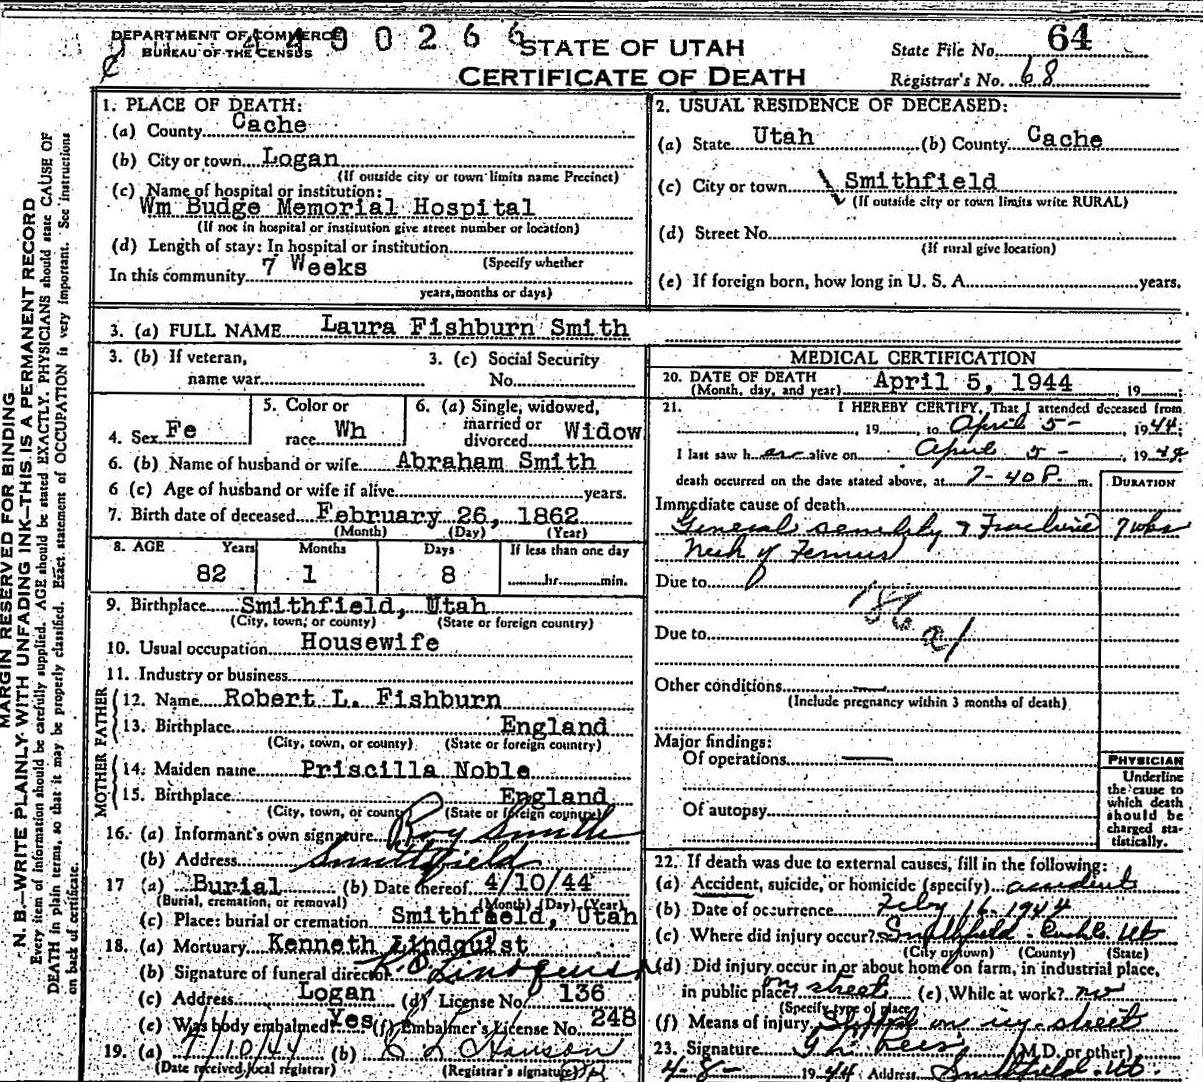 DEPARTMENT OF COMMERCE
BUREAU OF THE CENSUS
4400266
STATE OF UTAH
CERTIFICATE OF DEATH
State File No. 64
Registrar's No. 68
MARGIN RESERVED FOR BINDING
N. B.—WRITE PLAINLY WITH UNFADING INK—THIS IS A PERMANENT RECORD
Every item of information should be carefully supplied. AGE should be stated EXACTLY. PHYSICIANS should state CAUSE OF
DEATH in plain terms, so that it may be properly classified. Exact statement of OCCUPATION is very important. See instructions
on back of certificate.
1. PLACE OF DEATH:
(a) County Cache
(b) City or town Logan
(If outside city or town limits name Precinct)
(c) Name of hospital or institution:
Wm Budge Memorial Hospital
(If not in hospital or institution give street number or location)
(d) Length of stay: In hospital or institution
(Specify whether
In this community 7 Weeks
years, months or days)
2. USUAL RESIDENCE OF DECEASED:
(a) State Utah (b) County Cache
(c) City or town Smithfield
(If outside city or town limits write RURAL)
(d) Street No.
(If rural give location)
(e) If foreign born, how long in U. S. A. years.
3. (a) FULL NAME Laura Fishburn Smith
3. (b) If veteran,
name war
3. (c) Social Security
No.
4. Sex Fe
5. Color or
race Wh
6. (a) Single, widowed,
married or
divorced Widow
6. (b) Name of husband or wife Abraham Smith
6 (c) Age of husband or wife if alive years.
7. Birth date of deceased February 26, 1862
(Month) (Day) (Year)
8. AGE Years Months Days If less than one day
82 1 8 hr. min.
9. Birthplace Smithfield, Utah
(City, town, or county) (State or foreign country)
10. Usual occupation Housewife
11. Industry or business
FATHER
12. Name Robert L. Fishburn
13. Birthplace England
(City, town, or county) (State or foreign country)
MOTHER
14. Maiden name Priscilla Noble
15. Birthplace England
(City, town, or county) (State or foreign country)
16. (a) Informant's own signature Roy Smith
(b) Address Smithfield
17 (a) Burial (b) Date thereof 4/10/44
(Burial, cremation, or removal) (Month) (Day) (Year)
(c) Place: burial or cremation Smithfield, Utah
18. (a) Mortuary Kenneth Lindquist
(b) Signature of funeral director Lindquist
(c) Address Logan (d) License No. 136
(e) Was body embalmed? Yes (f) Embalmer's License No. 248
19. (a) 4/10/44 (b) Hanson
(Date received, local registrar) (Registrar's signature)
MEDICAL CERTIFICATION
20. DATE OF DEATH
(Month, day, and year) April 5, 1944 19
21. I HEREBY CERTIFY, That I attended deceased from
, 19 , to April 5 - 1944;
I last saw her alive on April 5 - , 1944
death occurred on the date stated above, at 7-40 P. m.
DURATION
Immediate cause of death
General senility & Fracture 7 wks
Neck of Femur
Due to
186 a1
Due to
Other conditions —
(Include pregnancy within 3 months of death)
Major findings:
Of operations —
Of autopsy
PHYSICIAN
Underline
the cause to
which death
should be
charged sta-
tistically.
22. If death was due to external causes, fill in the following:
(a) Accident, suicide, or homicide (specify) accident
(b) Date of occurrence Feby 16 1944
(c) Where did injury occur? Smithfield Cache Ut
(City or town) (County) (State)
(d) Did injury occur in or about home, on farm, in industrial place,
in public place? on street (e) While at work? no
(Specify type of place)
(f) Means of injury Slipped on icy street
23. Signature (M.D. or other)
4-8- 1944 Address Smithfield Ut.